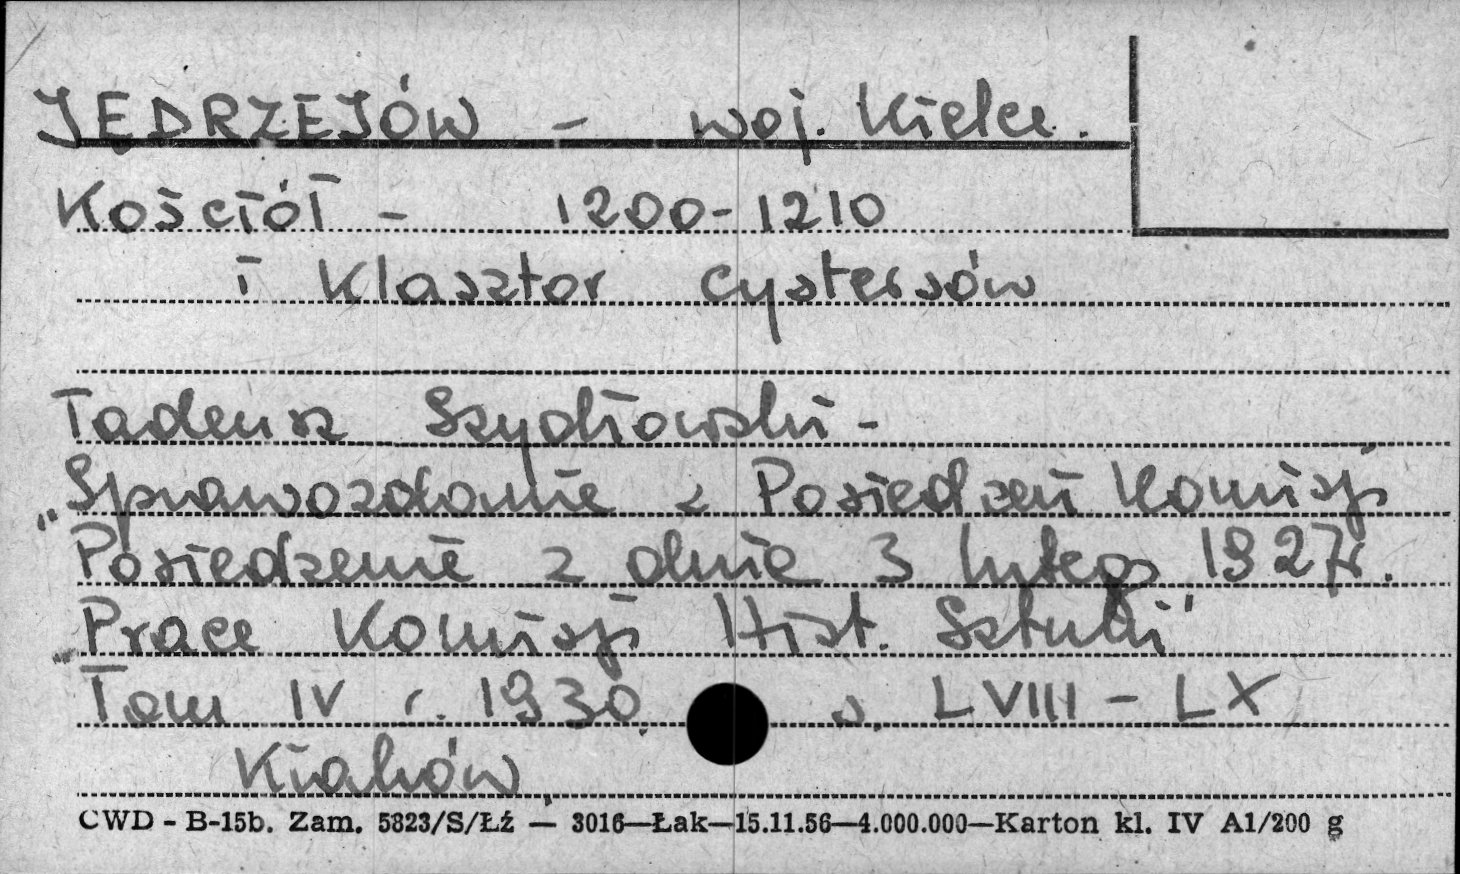 JĘDRZEJÓW - woj. Kielce.
Kościół - 1200-1210
i Klasztor cystersów
Tadeusz Szydłowski -
„Sprawozdanie z Posiedzeń Komisji
Posiedzenie z dnia 3 lutego 1927r.
„Prace Komisji Hist. Sztuki"
Tom IV r. 1930. s. LVIII - LX
Kraków,
CWD - B-15b. Zam. 5823/S/Łź — 3016—Łak—15.11.56—4.000.000—Karton kl. IV A1/200 g